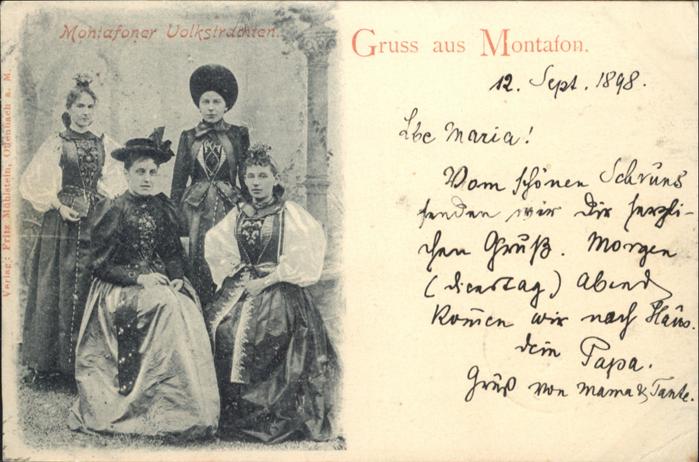 Montafoner Volkstrachten.
Gruss aus Montafon.
12. Sept. 1898.
Lbe Maria!
Vom schönen Schruns
senden wir Dir herzli-
chen Gruß. Morgen
(Dienstag) Abend
kom̅en wir nach Haus.
Dein Papa.
Gruß von Mama & Tante.
Verlag: Fritz Mühlstein, Offenbach a. M.